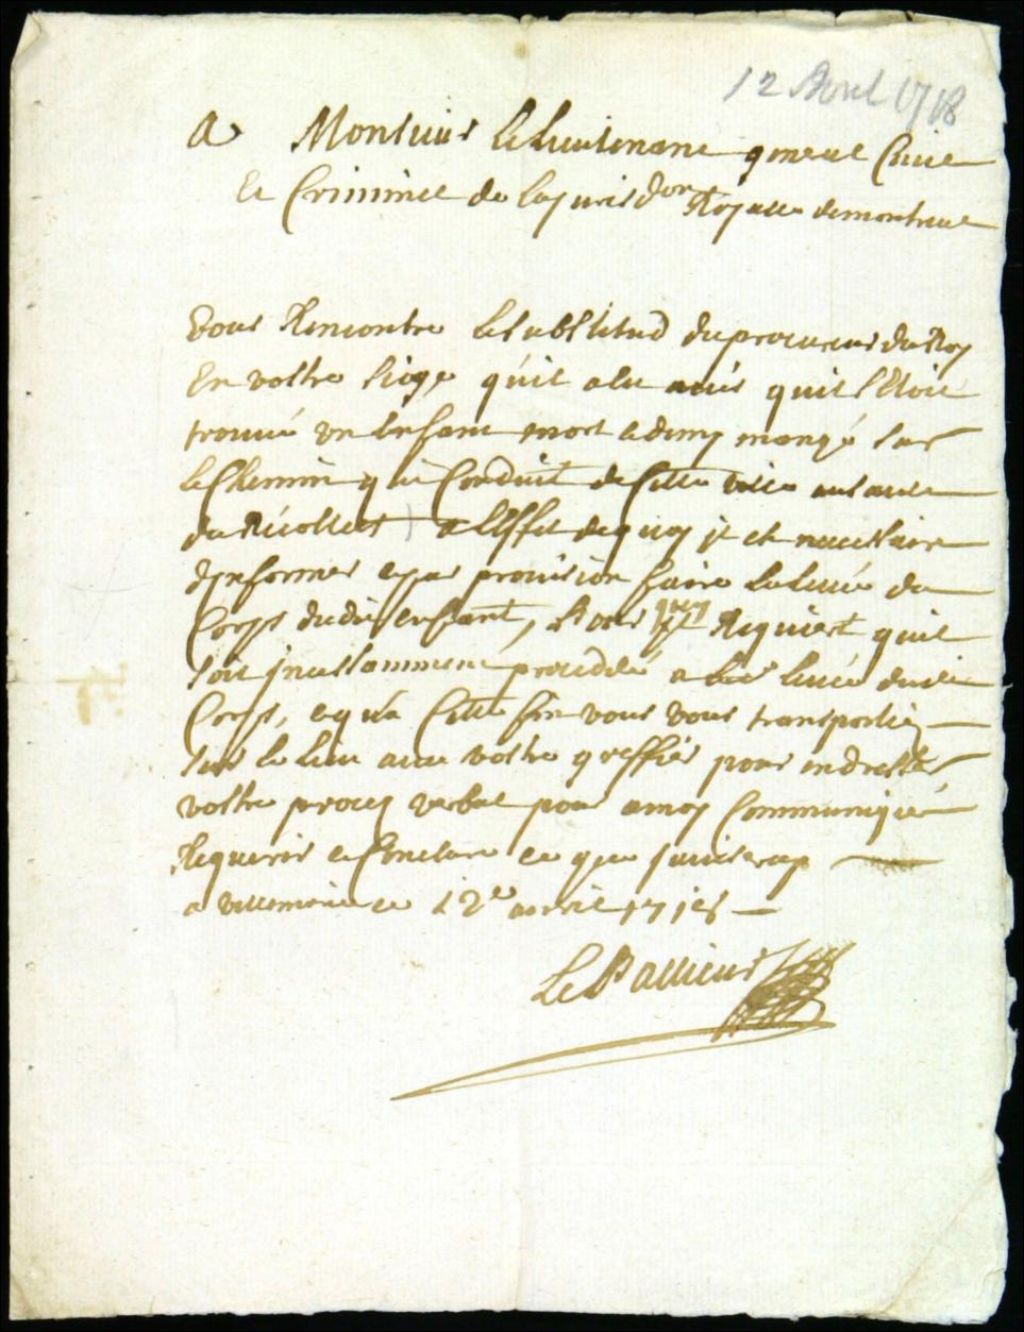 12 Avril 1718
A Monsieur Le lieutenant general Civil
Et Criminel de la jurisdon Royalle de montreal
Vous Remontre Le substitud du procureur du Roy
En vostre siege qu'il a Eu avis quil s'Etoit
trouvé un Enfant mort a demy mangé sur
le Chemin qui Conduit de Cette ville au
des Récollets a l'Effet de quoy jl est necessaire
d'jnformer et par provision faire la levée du
Corps dudit enfant, Requiert quil
soit jncessamment procedé a la levée dudit
Corps, et qu'a Cette fin vous vous transportiez
sur le lieu avec vostre greffier pour en dresser
vostre procez verbal pour a moy Communiqué
Requerir et Conclure ce que
a villemarie ce 12e avril 1718
Le Pallieur